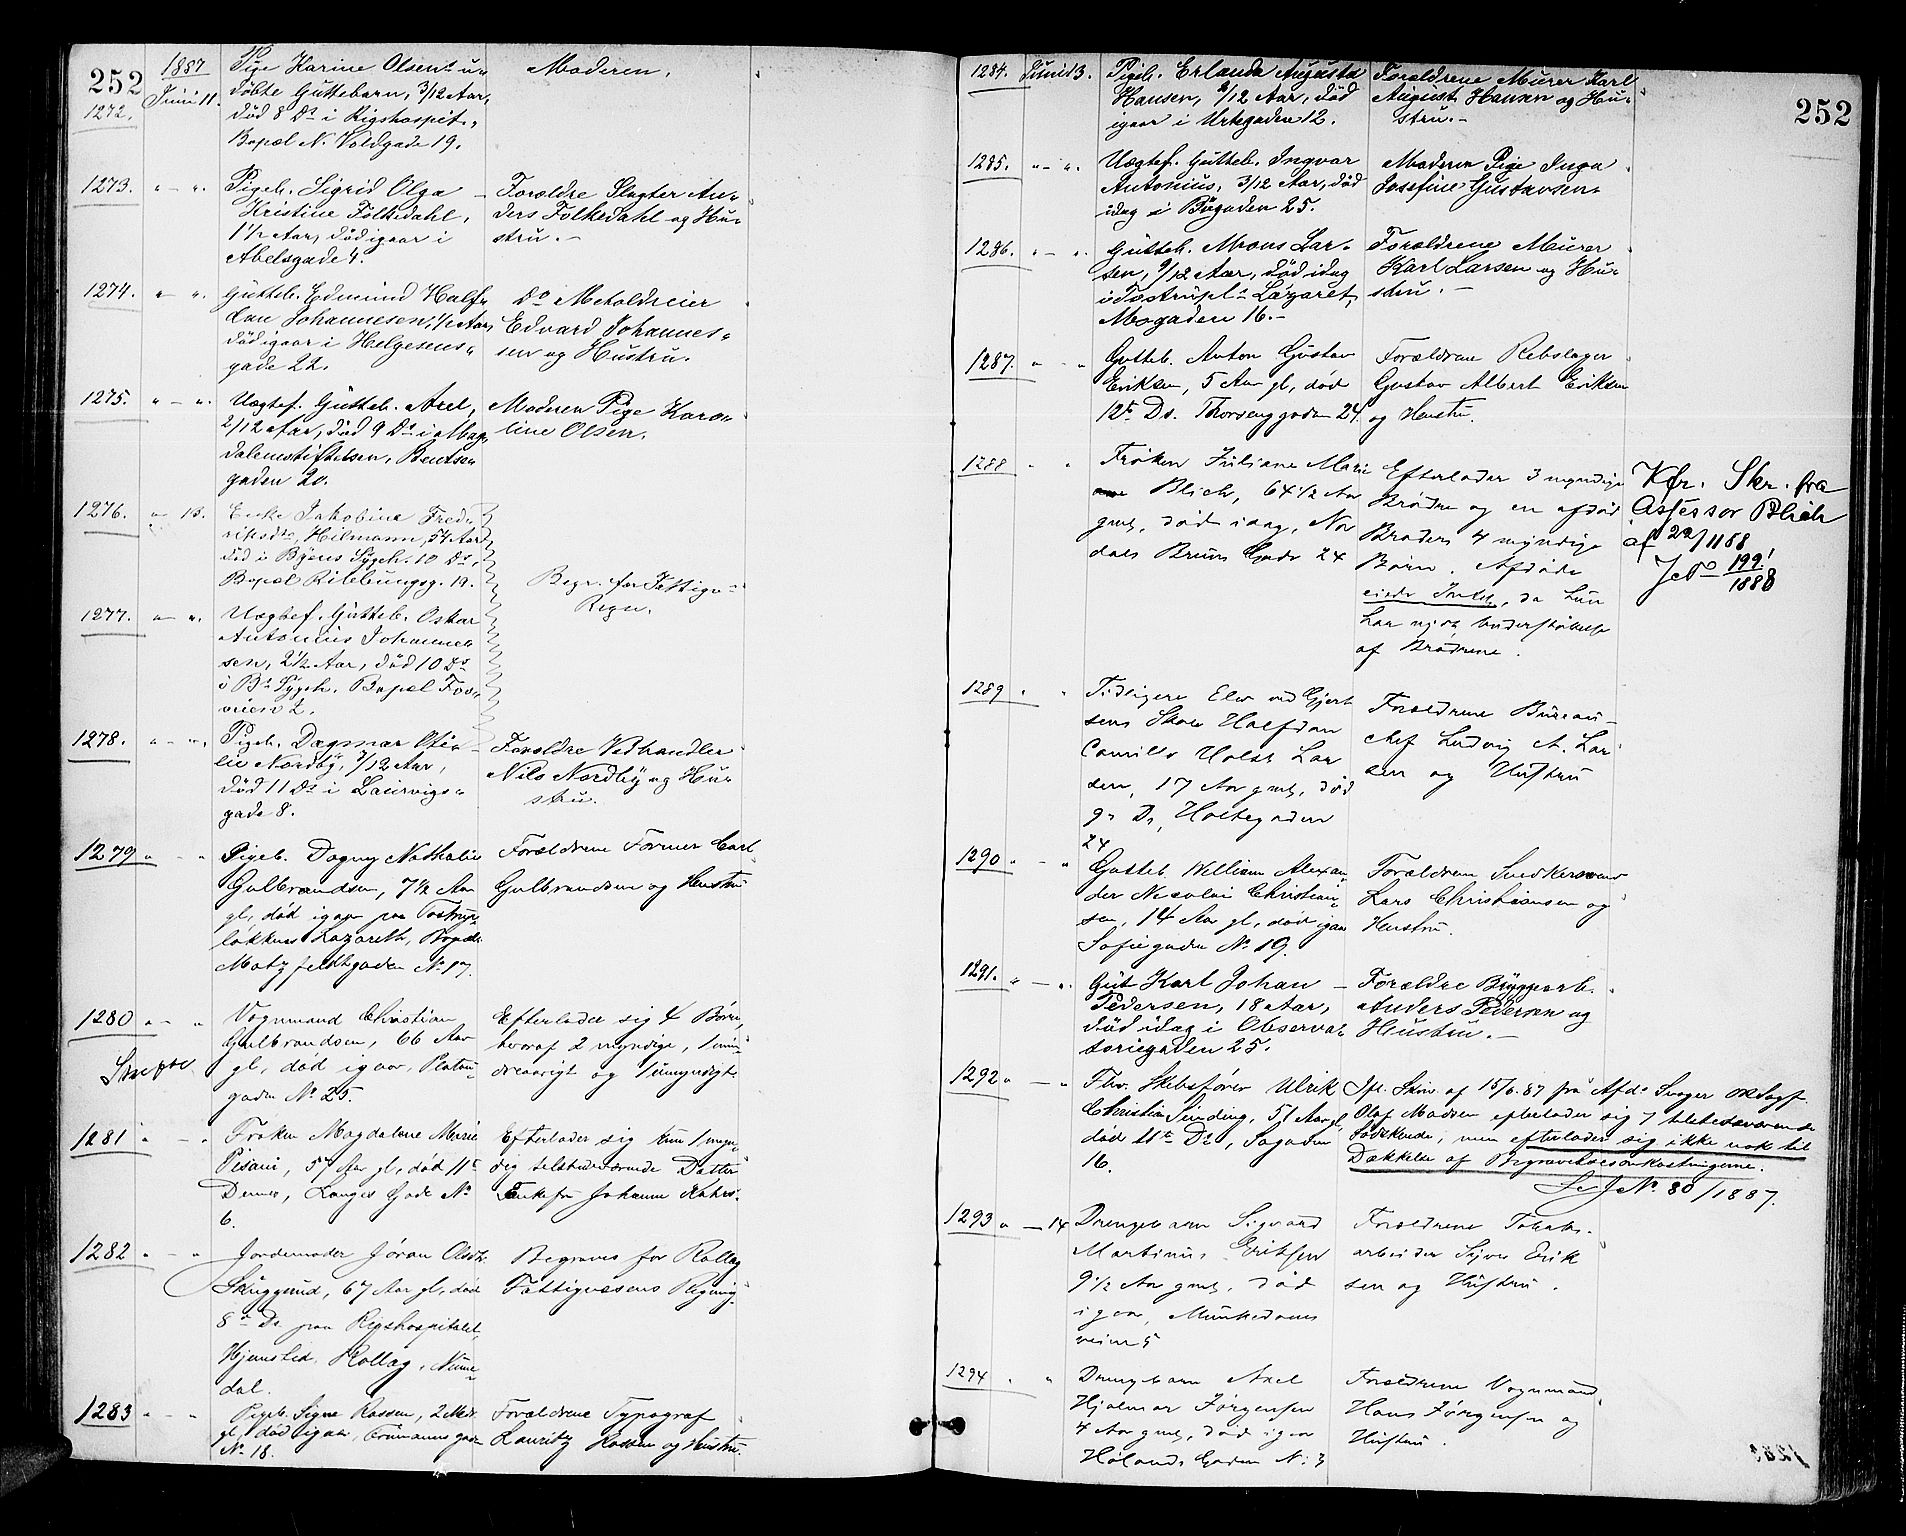 252
1887
1272. Juni 11. Pige Karine Olsens u-
döbte Guttebarn, 3/12 Aar,
död 8 Ds i Rigshospit.,
Bopæl N. Voldgade 19.
Moderen.
1273. " - ". Pigeb. Sigrid Olga
Kristine Folkedahl,
1 1/2 Aar, död igaar i
Abelsgade 4.
Forældre Slagter An-
ders Folkedahl og Hu-
stru. -
1274. " - ". Gutteb. Edmund Half-
dan Johannesen, 1/2 Aar,
död igaar i Helgesens-
gade 22.
Do Metaldreier
Edvard Johannes-
sen og Hustru.
1275. " - ". Uægtef. Gutteb. Axel,
2/12 Aar, död 9 Ds i Mag-
dalenestiftelsen, Bentse
gaden 20.
Moderen Pige Karo-
line Olsen.
1276. " - 13. Enke Jakobine Fred-
riksdtr. Heilmann, 54 Aar
död i Byens Sygeh. 10 Ds,
Bopæl Rittbungsg. 19.
Begr. for Fattigv-
Regn.
1277. " - ". Uægtef. Gutteb. Oskar
Antonius Johannes
sen, 2 1/2 Aar, död 10 Ds
i Bs Sygeh. Bopæl Fos-
veien 2.
1278. " - ". Pigeb. Dagmar Oti-
lie Nordby, 7/12 Aar,
död 11 Ds i Laurvigs-
gade 8.
Forældre Vedhandler
Nils Nordby og Hu-
stru.
1279 " - " Pigeb. Dagny Nathalie
Gulbrandsen, 7 1/2 Aar
gl, död igaar paa Tostrup-
lökkens Lazareth, Bopæl
Motzfeldtgaden No 17.
Forældrene Former Carl
Gulbrandsen og Hustru
1280 " - " Vognmand Christian
Gulbrandsen, 66 Aar
gl, död igaar, Platou-
gaden No 25.
Skifte
Efterlader sig 4 Börn,
hvoraf 2 myndige, 1 min-
dreaarigt og 1 umyndigt.
1281 " - " Fröken Magdalene Marie
Pisani, 57 Aar gl, död 11te
Dennes, Langes Gade No
6.
Efterlader sig kun 1 myn-
dig tilstedeværende Datter
Enkefru Johanne Kahrs.
1282 " - " Jordemoder Jöran Olsdtr.
Skuggerud, 67 Aar gl, död
8de Ds paa Rigshospitalet,
Hjemsted Rollag, Nume-
dal.
Begraves for Rollag
Fattigvæsens Regning.
1283 " - " Pigeb. Signe Rossen, 2 Mdr
gl, död igaar, Trumannsgade
No 18.
Forældrene Typograf
Lauritz Rossen og Hustru.
1284. Juni 13. Pigeb. Erlanda Augusta
Hansen, /12 Aar, död
igaar i Urtegaden 12.
Forældrene Murer Karl
August Hansen og Hu-
stru. -
252
1285. " - ". Uægtef. Gutteb. Ingvar
Antonius, 3/12 Aar, död
idag i Bögaden 25.
Moderen Pige Inga
Josefine Gustavsen.
1286. " - ". Gutteb. Mrous Lar-
sen, 9/12 Aar, död idag
i Tostrupl's Lazaret,
Mogaden 16. -
Forældrene Murer
Karl Larsen og Hu-
stru. -
1287. " - " Gutteb. Anton Gustav
Eriksen, 5 Aar gl, död
12te Ds. Thorseggaden 24.
Forældrene Rebslager
Gustav Albert Eriksen
og Hustru.
1288 " " Fröken Juliane Marie
Blich, 64 1/2 Aar
gml, död idag, Nor
dals Bruns Gade 24
Efterlader 3 myndige
Brödre og en afdöd
Broders 4 myndige
Börn. Afdöde
eiede Intet, da hun
har nydt Understöttelse
af Brödrene.
Kfr. Skr. fra
Assessor Blich
af 22/1188
JNo 199/1888
1289 " " Tidligere Elev ved Gjert
sens Skole Halfdan
Camillo Holst Lar
sen, 17 Aar gml, död
9de Ds, Holtegaden
24
Forældrene Bureau-
chef Ludvig A. Lar
sen og Hustru
1290 " - " Gutteb. William Alexan-
der Nicolai Christian-
sen, 14 Aar gl, död igaar
Sofiegaden No 19.
Forældrene Snedkersvend
Lars Christiansen og
Hustru.
1291. " - ". Gut Karl Johan
Pedersen, 18 Aar,
död idag i Observa-
toriegaden 25.
Forældre Byggearb.
Anders Pedersen og
Hustru. -
1292 " - " Fhv. Skibsförer Ulrik
Christian Sinding, 51 Aar gl,
död 11te Ds, Sagaden
16.
Ifl. Skriv. af 15/6.87 fra Afds Svoger ORSagf.
Olaf Madsen efterlader sig 7 tilstedeværende
Södskende, men efterlader sig ikke nok til
Dækkelse af Begravelsesomkostningerne.
Se JNo 80/1887.
1293 " - 14 Drengebarn Sigvard
Martinus Eriksen
9 1/2 Aar gml, död
igaar, Munkedams
veien 5
Forældrene Tobaks-
arbeider Syver Erik
sen og Hustru.
1294 " " Drengebarn Axel
Hjalmar Jörgensen
4 Aar gml, död igaar
Hölands Gaden No 3
Forældrene Vognmand
Hans Jörgensen og
Hustru.